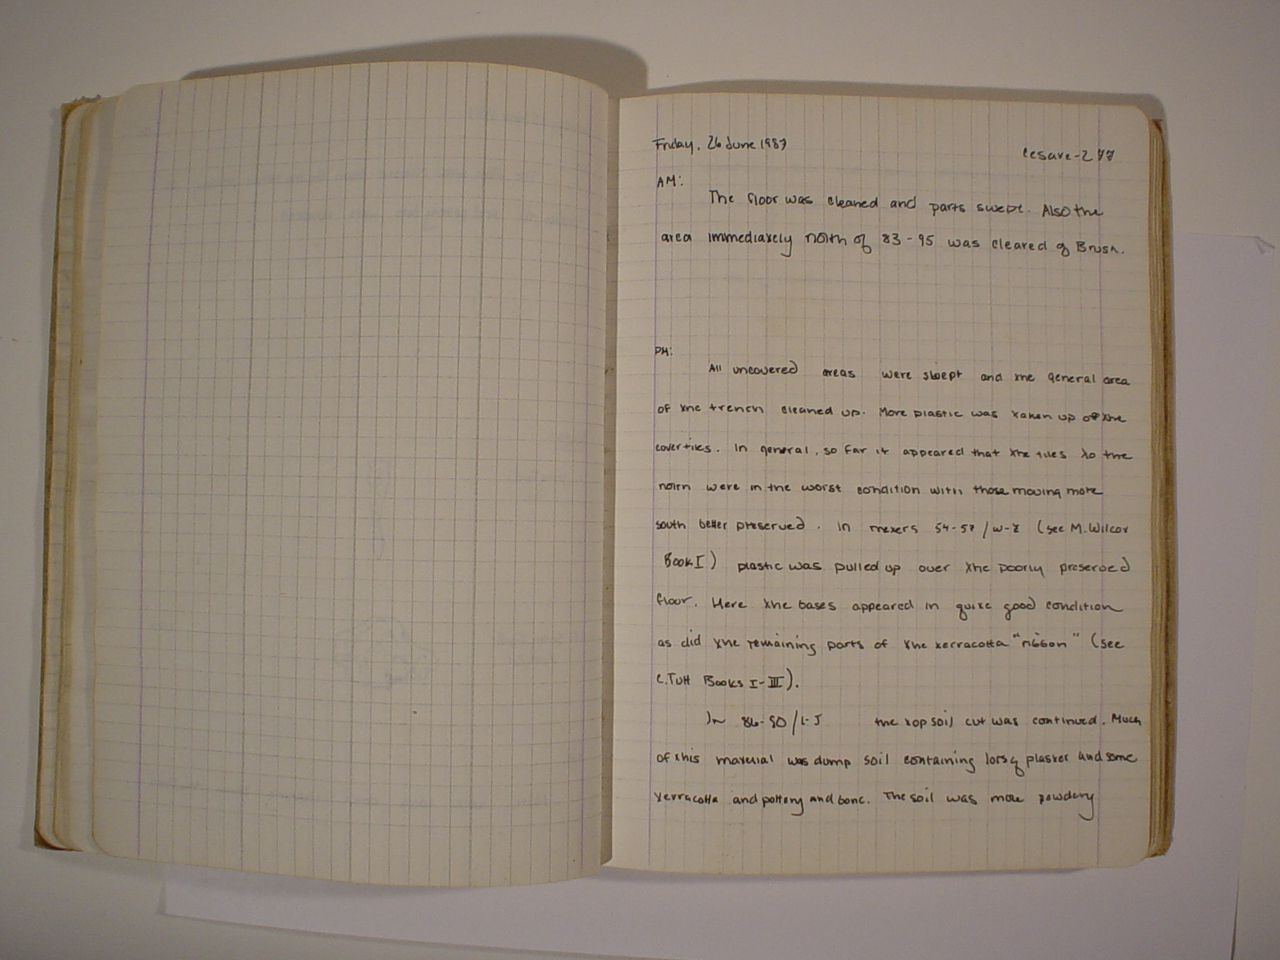 Friday, 26 June 1987
Cesare-277
AM:
The floor was cleaned and parts swept. Also the
area immediately north of 83-95 was cleared of Brush.
PM:
All uncovered areas were swept and the general area
of the trench cleaned up. More plastic was taken up of the
covertiles. In general, so far it appeared that the tiles to the
north were in the worst condition with those moving more
south better preserved. In meters 54-57/W-Z (see M. Wilcox
Book I) plastic was pulled up over the poorly preserved
floor. Here the bases appeared in quite good condition
as did the remaining parts of the terracotta "ribbon" (see
C.Tuft Books I-III).
In 86-90/I-J the top soil cut was continued. Much
of this material was dump soil containing lots of plaster and some
terracotta and pottery and bone. The soil was more powdery